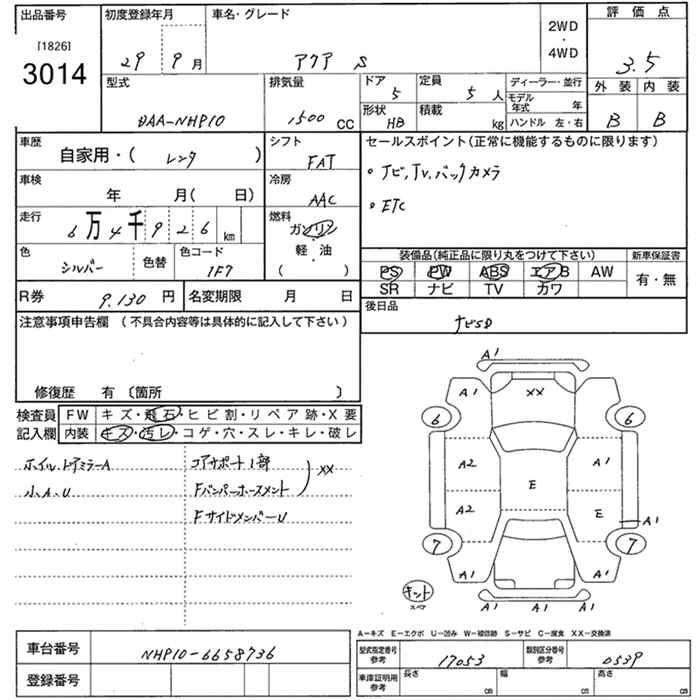 出品番号
[1826]
3014
初度登録年月
29 9月
車名・グレード
アクア S
2WD
・
4WD
評価点
3.5
外装 内装
B B
型式
DAA-NHP10
排気量
1500 CC
ドア
5
定員
5人
形状
HB
積載
kg
ディーラー・並行
モデル年式 年
ハンドル 左・右
車歴
自家用・( レンタ )
シフト
FAT
車検
年 月( 日)
冷房
AAC
走行
6万4千926km
燃料
ガソリン
・
軽油
( )
色
シルバー
色替
色コード
1F7
R券
9.130円
名変期限 月 日
セールスポイント(正常に機能するものに限ります)
・ナビ,TV,バックカメラ
・ETC
装備品(純正品に限り丸をつけて下さい)
PS PW ABS エアB AW
SR ナビ TV カワ
新車保証書
有・無
後日品
ナビSD
注意事項申告欄(不具合内容等は具体的に記入して下さい)
修復歴 有〔箇所 〕
検査員記入欄
FW キズ・飛石・ヒビ割・リペア跡・X要
内装 キズ・汚レ・コゲ・穴・スレ・キレ・破レ
ホイル,ドアミラーA
小A、U
コアサポート1部
Fバンパーホースメント
XX
FサイドメンバーU
A1
A1 XX A1
6 6
A2 A1
E
A2 E
A1
7 7
A1 A1
キット
スペア
A1 A1 A1
A-キズ E-エクボ U-凹み W-補修跡 S-サビ C-腐食 XX-交換済
車台番号
NHP10-6658736
登録番号
型式指定番号
参考
17053
類別区分番号
参考
0539
車庫証明用
参考
長さ cm
幅 cm
高さ cm